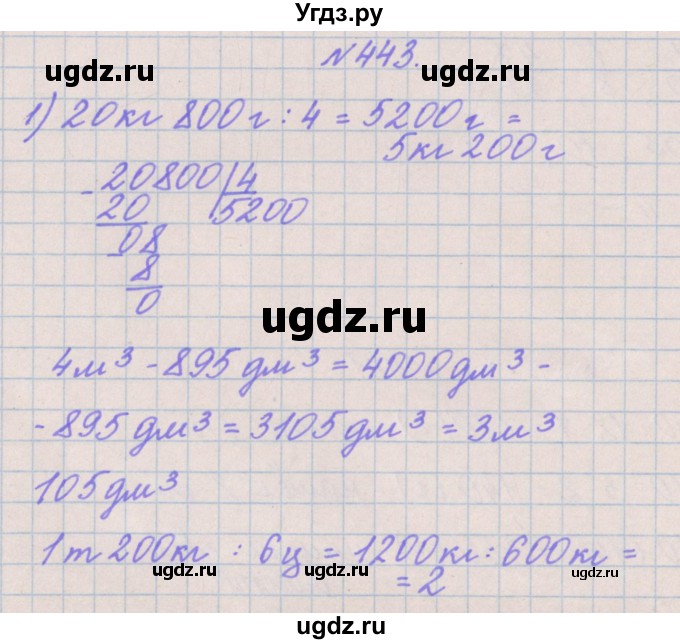 Угдз.ру
№443.
ugdz.ru ugdz.ru
1) 20кг 800г : 4 = 5200г =
5кг 200г
- 20800 | 4
20 5200
- 08
8
0
ugdz.ru
4м³ - 895 дм³ = 4000дм³ -
- 895 дм³ = 3105дм³ = 3м³
105дм³
1т 200кг : 6ц = 1200кг : 600кг =
ugdz.ru ugdz.ru ugdz.ru
= 2
ugdz.ru